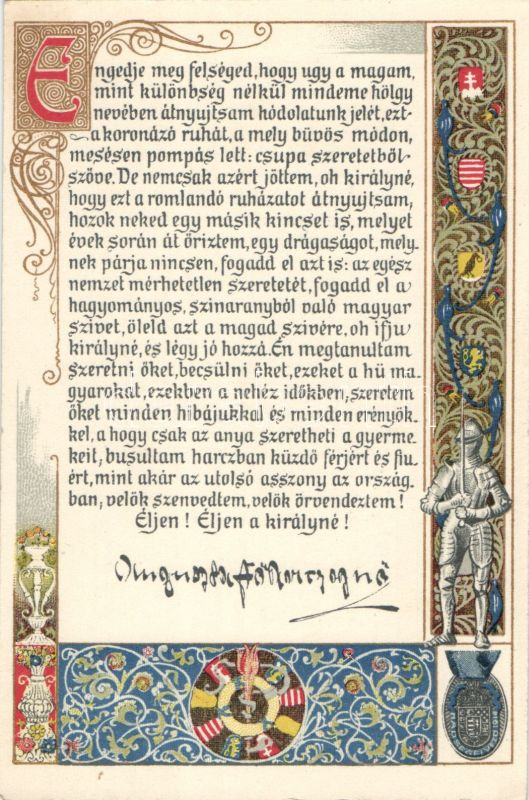 Engedje meg felséged, hogy ugy a magam,
mint különbség nélkül mindeme hölgy
nevében átnyujtsam hódolatunk jelét, ezt
a koronázó ruhát, a mely büvös módon,
mesésen pompás lett: csupa szeretetből
szőve. De nemcsak azért jöttem, oh királyné,
hogy ezt a romlandó ruházatot átnyujtsam,
hozok neked egy másik kincset is, melyet
évek során át őriztem, egy drágaságot, mely-
nek párja nincsen, fogadd el azt is: az egész
nemzet mérhetetlen szeretetét, fogadd el a
hagyományos, szinaranyból való magyar
szivet, öleld azt a magad szivére, oh ifju
királyné, és légy jó hozzá. Én megtanultam
szeretni őket, becsülni őket, ezeket a hü ma-
gyarokat, ezekben a nehéz időkben, szeretem
őket minden hibájukkal és minden erényök-
kel, a hogy csak az anya szeretheti a gyerme-
keit, busultam harczban küzdő férjért és fiu-
ért, mint akár az utolsó asszony az ország-
ban, velök szenvedtem, velök örvendeztem!
Éljen! Éljen a királyné!
Auguszta Főherczegnő